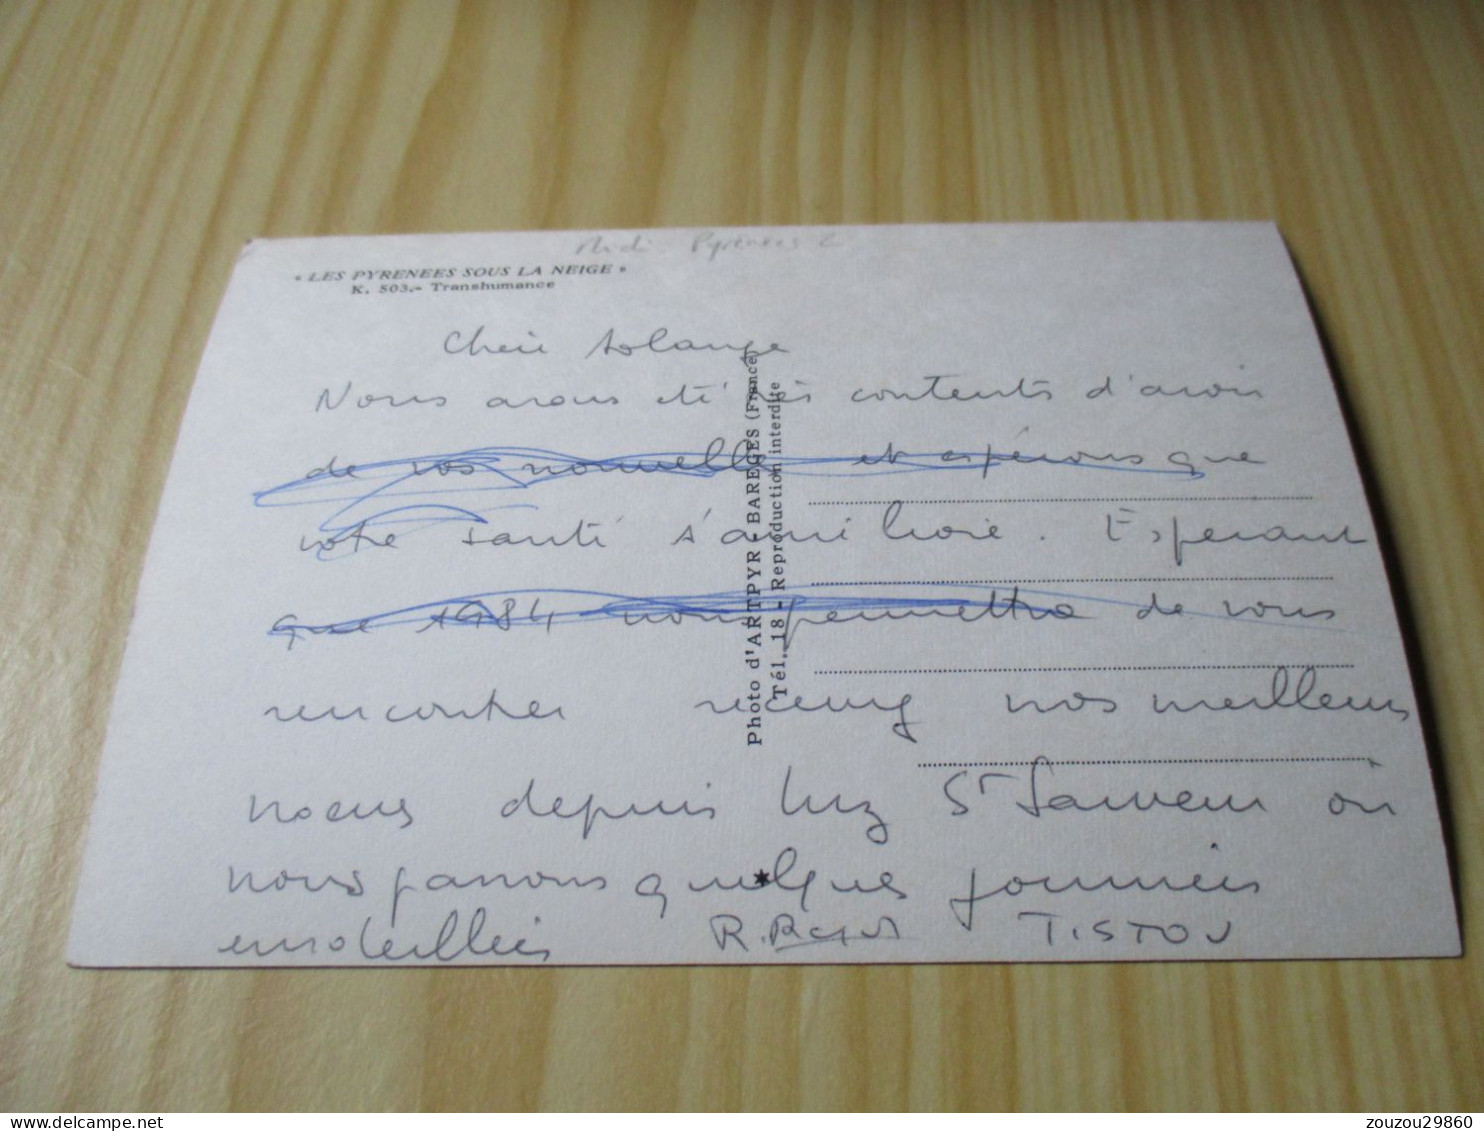 Midi Pyrénées 2
« LES PYRENEES SOUS LA NEIGE »
K. 503.- Transhumance
Photo d'ARTPYR - BAREGES (France)
Tél. 18 - Reproduction interdite
Chère Solange
Nous avons été très contents d'avoir
de vos nouvelles et espérons que
votre santé s'améliore. Espérant
que 1984 nous permettra de vous
rencontrer recevez nos meilleurs
voeux depuis Luz St Sauveur où
nous passons quelques journées
ensoleillées R. TISTOU
zouzou29860